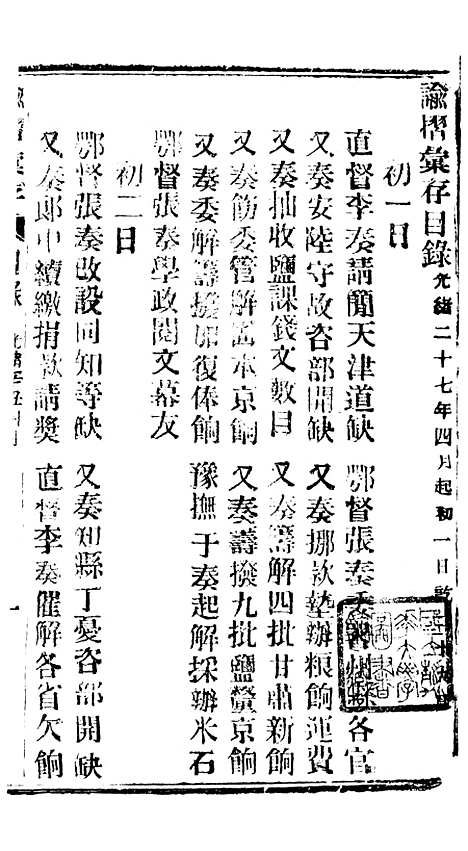 諭摺彙存目錄 光緒二十七年四月起初一日
初一日
直督李奏請簡天津道缺 鄂督張奏 各官
又奏安陸守故咨部開缺 又奏挪款墊辦粮餉運費
又奏抽收鹽課錢文數目 又奏籌解四批甘肅新餉
又奏筋委管解 本京餉 又奏籌撥九批鹽釐京餉
又奏委解籌撥加復俸餉 豫撫于奏起解採辦米石
鄂督張奏學政閱文幕友
初二日
鄂督張奏改設同知等缺 又奏知縣丁憂咨部開缺
又奏郎中續繳捐款請獎 直督李奏催解各省欠餉
一